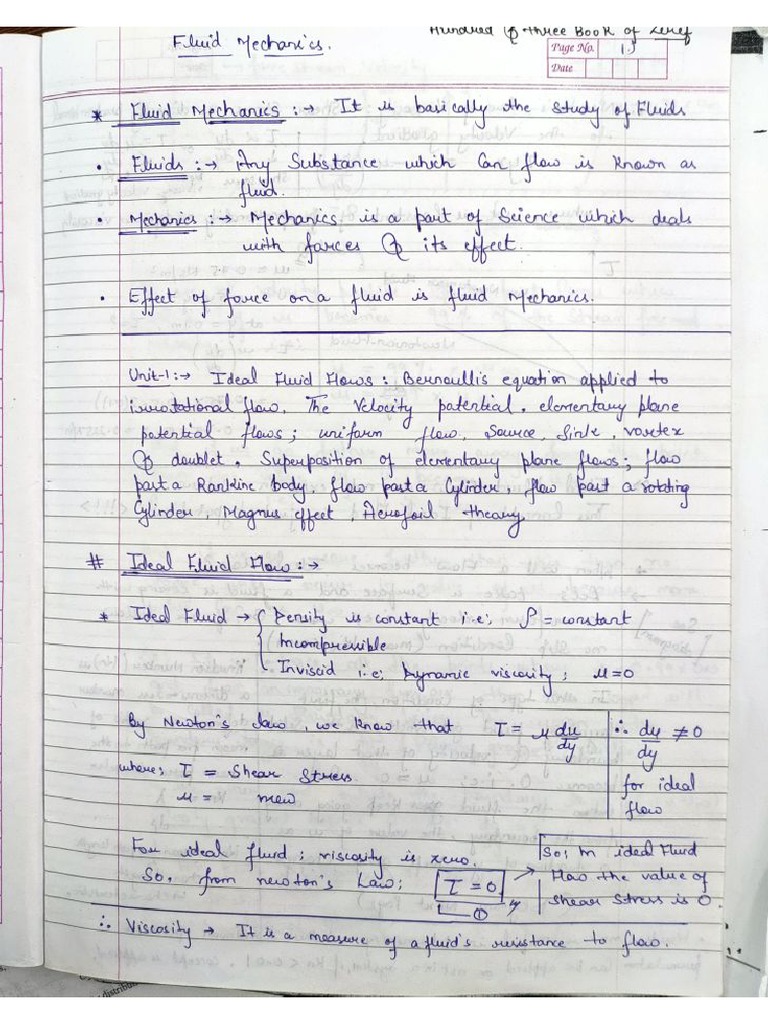 Hundred & three Book of Zeref
Fluid Mechanics.
Page No. 1.
Date
* Fluid Mechanics :→ It is basically the study of Fluids
• Fluids :→ Any Substance which can flow is known as
fluid.
• Mechanics :→ Mechanics is a part of Science which deals
with forces & its effect.
• Effect of force on a fluid is fluid Mechanics.
Unit-1 :→ Ideal Fluid Flows : Bernoullis equation applied to
irrotational flow. The Velocity potential, elementary plane
potential flows ; uniform flow, Source, Sink, vortex
& doublet. Superposition of elementary plane flows ; flow
past a Rankine body, flow past a Cylinder, flow past a rotating
Cylinder, Magnus effect, Aerofoil theory.
# Ideal Fluid Flow :→
* Ideal Fluid → { Density is constant i.e; ρ = constant
Incompressible
Inviscid i.e; Dynamic viscosity ; μ=0
By Newton's law, we know that τ = μ du/dy | ∴ du/dy ≠ 0
for ideal
flow
where; τ = Shear Stress
μ = mew
For ideal fluid ; viscosity is zero.
So, from newton's Law; τ = 0 ①
So, In ideal Fluid
Has the value of
shear stress is 0.
∴ Viscosity → It is a measure of a fluid's resistance to flow.